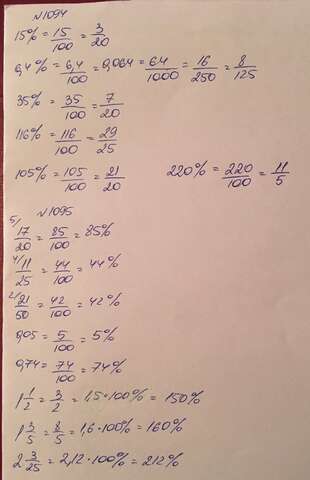 №1094
15% = 15/100 = 3/20
6,4% = 6,4/100 = 0,064 = 64/1000 = 16/250 = 8/125
35% = 35/100 = 7/20
116% = 116/100 = 29/25
105% = 105/100 = 21/20 220% = 220/100 = 11/5
№1095
5/ 17/20 = 85/100 = 85%
4/ 11/25 = 44/100 = 44%
2/ 21/50 = 42/100 = 42%
0,05 = 5/100 = 5%
0,74 = 74/100 = 74%
1 1/2 = 3/2 = 1,5·100% = 150%
1 3/5 = 8/5 = 1,6·100% = 160%
2 3/25 = 2,12·100% = 212%